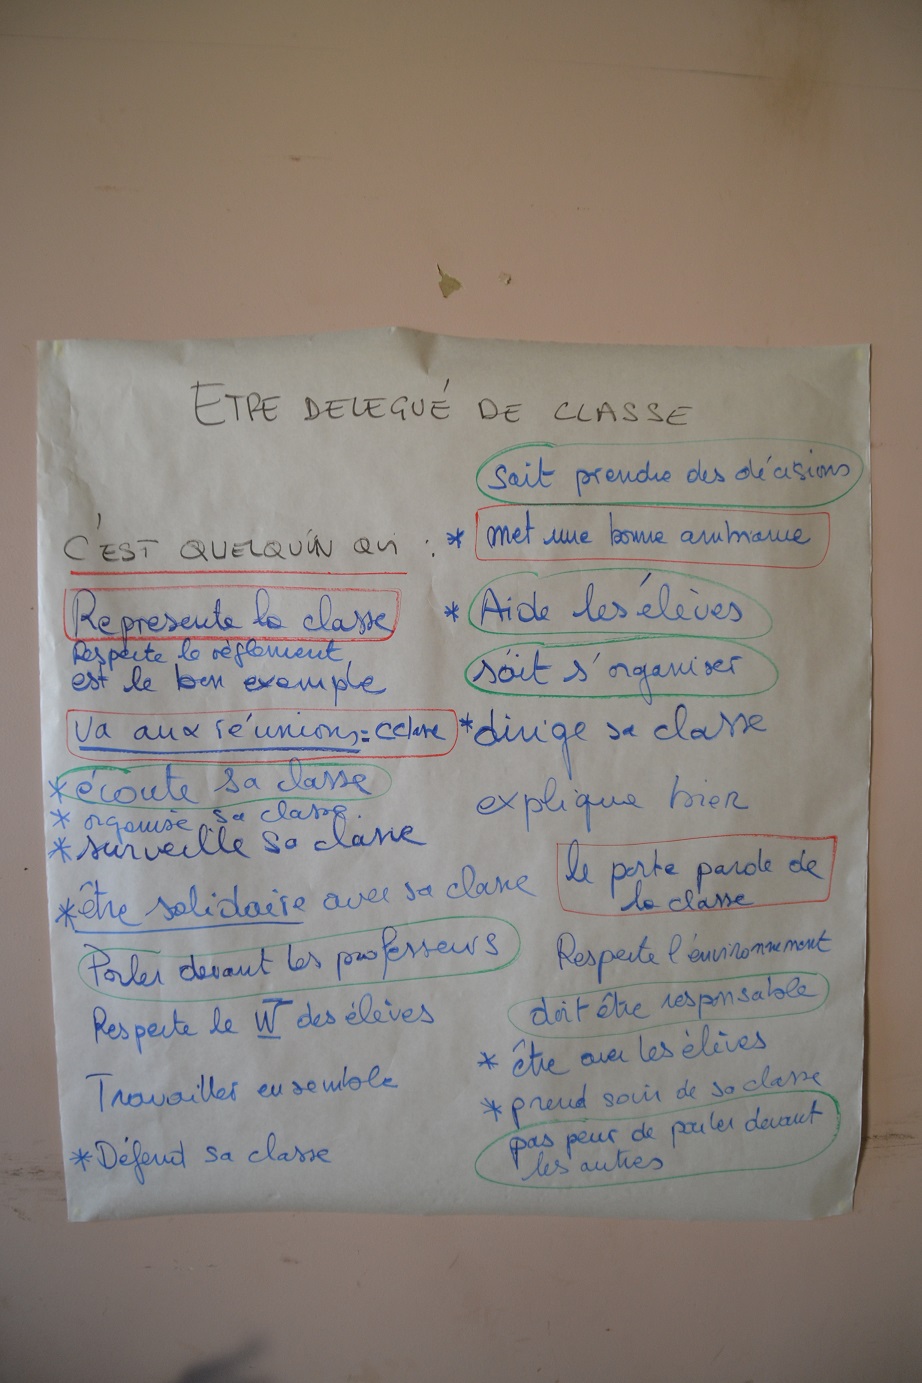 ETRE DELEGUÉ DE CLASSE
C'EST QUELQU'UN QUI :
Represente la classe
Respecte le règlement
est le bon exemple
Va aux réunions =
* écoute sa classe
* organise sa classe
* surveille sa classe
* être solidaire avec sa classe
Parler devant les professeurs
Respecte le W des élèves
Travailler ensemble
* Défend sa classe
sait prendre des décisions
* met une bonne ambiance
* Aide les élèves
sait s'organiser
* dirige sa classe
explique bien
le porte parole de
la classe
Respecte l'environnement
doit être responsable
* être avec les élèves
* prend soin de sa classe
pas peur de parler devant
les autres